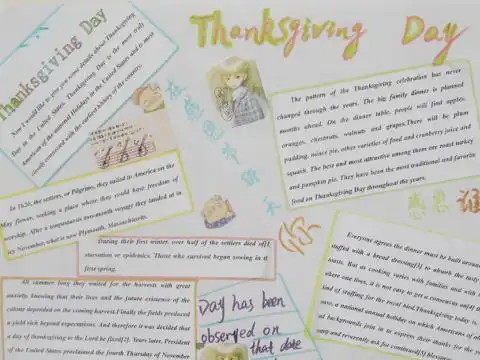 Thanksgiving Day
Thanksgiving Day
Now I would like to give you some details about Thanksgiving
Day in the United States. Thanksgiving Day is the most truly
American of the national Holidays in the United States and is most
closely connected with the earliest history of the country.
The pattern of the Thanksgiving celebration has never
changed through the years. The big family dinner is planned
months ahead. On the dinner table, people will find apples,
oranges, chestnuts, walnuts and grapes.There will be plum
pudding, mince pie, other varieties of food and cranberry juice and
squash. The best and most attractive among them are roast turkey
and pumpkin pie. They have been the most traditional and favorite
food on Thanksgiving Day throughout the years.
在感恩节那天
In 1620, the settlers, or Pilgrims, they sailed to America on the
May flower, seeking a place where they could have freedom of
worship. After a tempestuous two-month voyage they landed at in
icy November, what is now Plymouth, Massachusetts.
During their first winter, over half of the settlers died of
starvation or epidemics. Those who survived began sowing in the
first spring.
你
感恩谁
All summer long they waited for the harvests with great
anxiety, knowing that their lives and the future existence of the
colony depended on the coming harvest. Finally the fields produced
a yield rich beyond expectations. And therefore it was decided that
a day of thanksgiving to the Lord be fixed. Years later, President
of the United States proclaimed the fourth Thursday of November
Day has been
observed on
that date
Everyone agrees the dinner must be built around
stuffed with a bread dressing to absorb the tasty
roast. But as cooking varies with families and with
where one lives, it is not easy to get a consensus on
kind of stuffing for the royal bird. Thanksgiving today is,
case, a national annual holiday on which Americans of
backgrounds join in to express their thanks for the
and reverently ask for continued